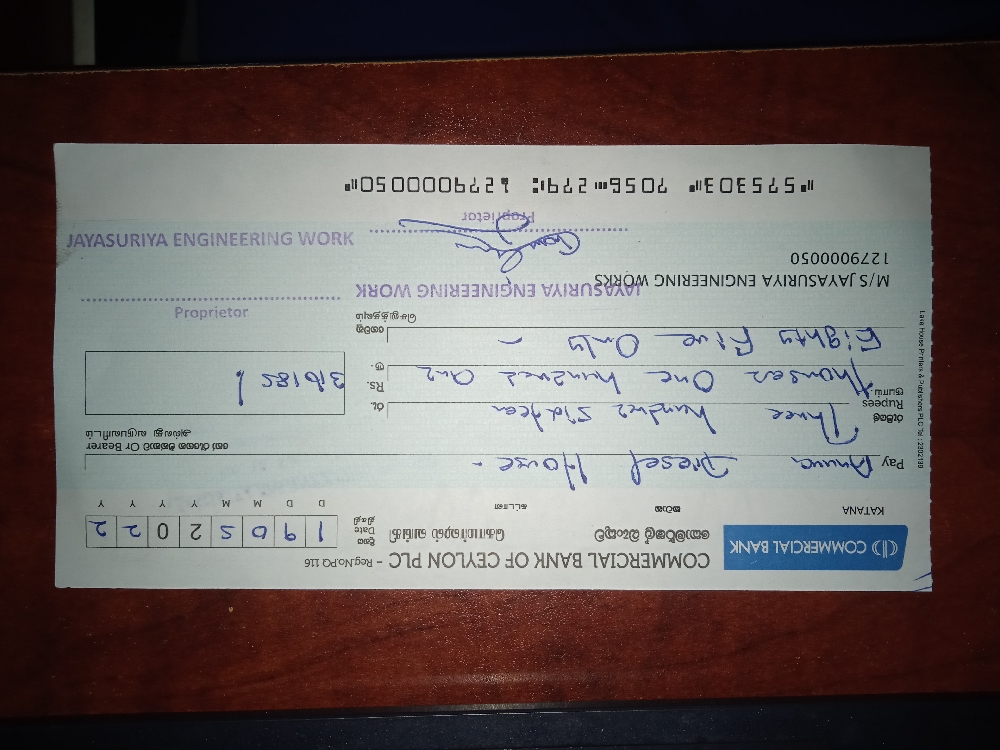 COMMERCIAL BANK
COMMERCIAL BANK OF CEYLON PLC - Reg.No.PQ 116
කොමර්ෂල් බැංකුව கொமர்ஷல் வங்கி
KATANA කටාන கட்டான
දිනය Date திகதி
1 9 0 5 2 0 2 2
D D M M Y Y Y Y
Pay Anura Diesel House -
හෝ රැගෙන එන්නාට Or Bearer
அல்லது வருபவரிடம்
රුපියල් Rupees ரூபாய்
Three hundred Sixteen
Thousen One hundred and
Eighty Five Only -
රු. Rs. ரூ.
316185/
ගෙවනු செலுத்தவும்
M/S JAYASURIYA ENGINEERING WORKS
1279000050
JAYASURIYA ENGINEERING WORK
Proprietor
JAYASURIYA ENGINEERING WORK
Proprietor
Lake House Printers & Publishers PLC Tel : 2302139
⑈575303⑈ 7056⑉279⑆ 1279000050⑈